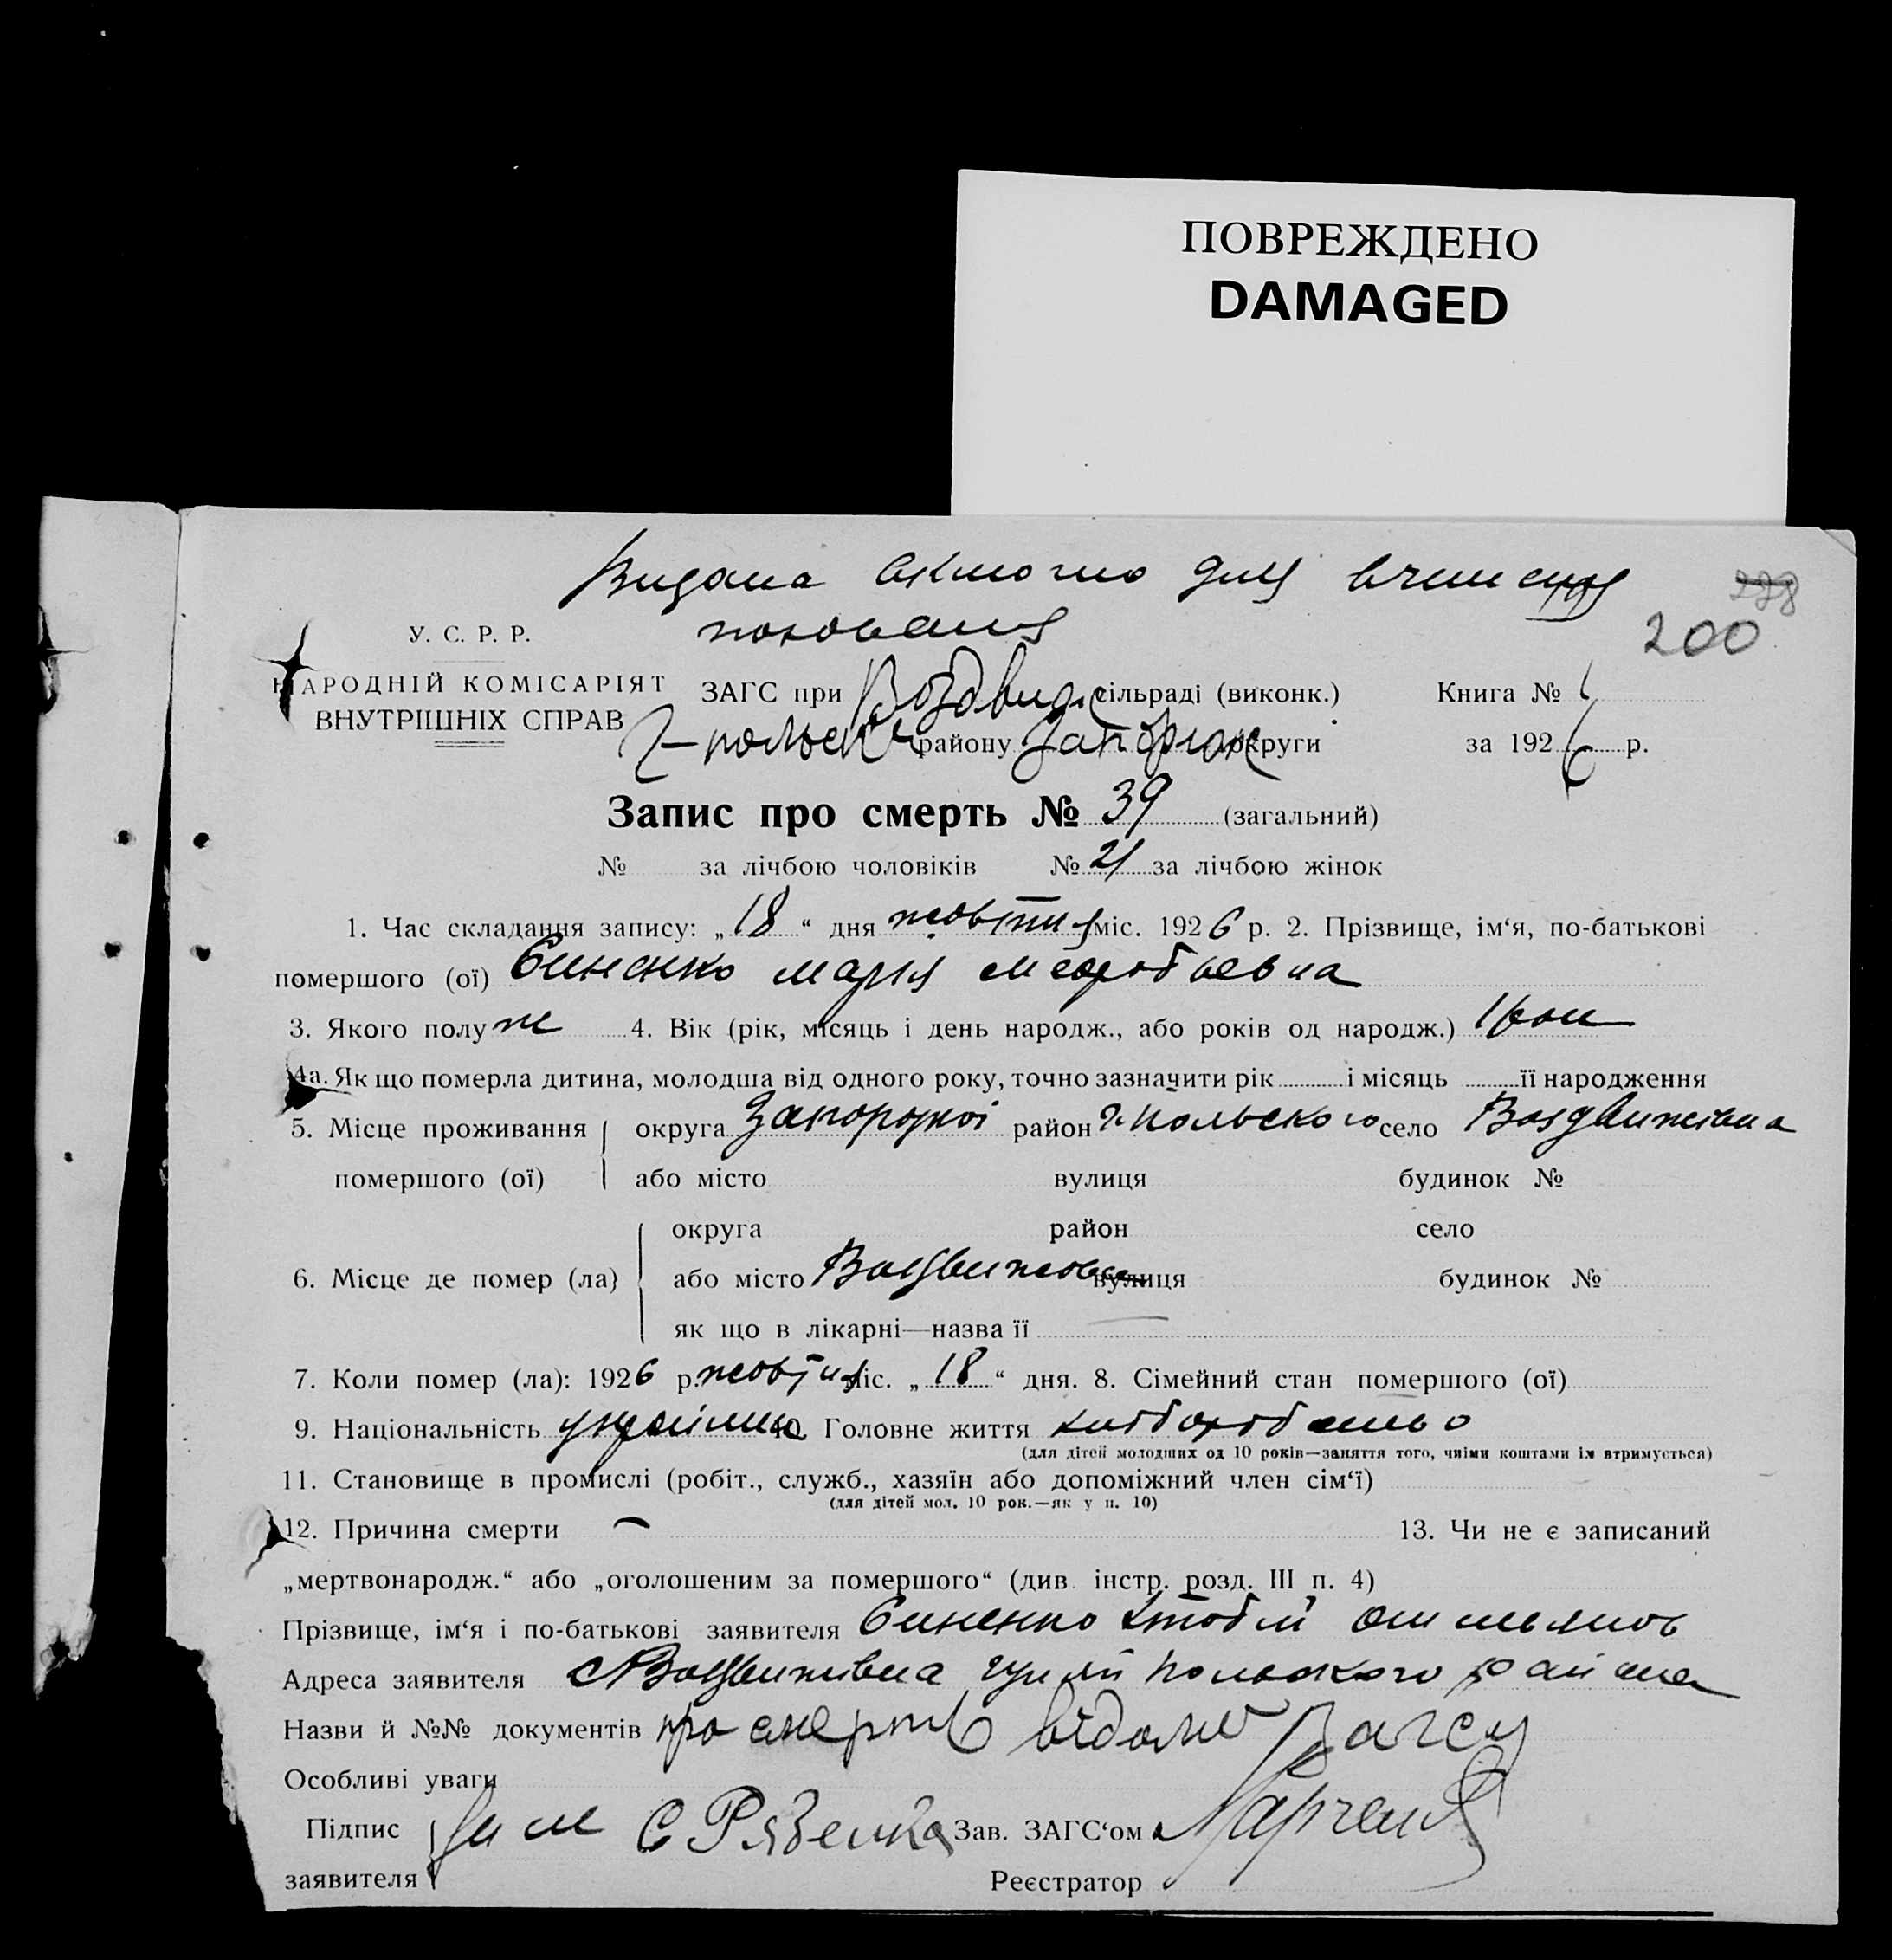 ПОВРЕЖДЕНО
DAMAGED
Видана для вчинення
поховання
228
200
У. С. Р. Р.
НАРОДНІЙ КОМІСАРІЯТ
ВНУТРІШНІХ СПРАВ
ЗАГС при Воздвиж сільраді (виконк.) Книга № 1
Г-польськ району Запоріж округи за 1926 р.
Запис про смерть № 39 (загальний)
№ за лічбою чоловіків № 21 за лічбою жінок
1. Час складання запису: „18“ дня жовтня міс. 1926 р. 2. Прізвище, ім‘я, по-батькові
помершого (ої) Синенко Марія
3. Якого полу ж 4. Вік (рік, місяць і день народж., або років од народж.) 1
4а. Як що померла дитина, молодша від одного року, точно зазначити рік і місяць її народження
5. Місце проживання округа Запорожої район Г. Польского село Воздвижівка
помершого (ої) або місто вулиця будинок №
округа район село
6. Місце де помер (ла) або місто Воздвижовка вулиця будинок №
як що в лікарні—назва її —
7. Коли помер (ла): 1926 р. жовтня міс. „18“ дня. 8. Сімейний стан помершого (ої)
9. Національність 10. Головне життя
(для дітей молодших од 10 років—заняття того, чиїми коштами їх втримується)
11. Становище в промислі (робіт., служб., хазяїн або допоміжний член сім‘ї)
(для дітей мол. 10 рок.—як у п. 10)
12. Причина смерти — 13. Чи не є записаний
„мертвонародж.“ або „оголошеним за помершого“ (див. інстр. розд. III п. 4)
Прізвище, ім‘я і по-батькові заявителя Синенко
Адреса заявителя с Воздвижівка Гуляй Польского района
Назви й №№ документів про смерть відомо Загсу
Особливі уваги
Підпис Зав. ЗАГС‘ом
заявителя Реєстратор